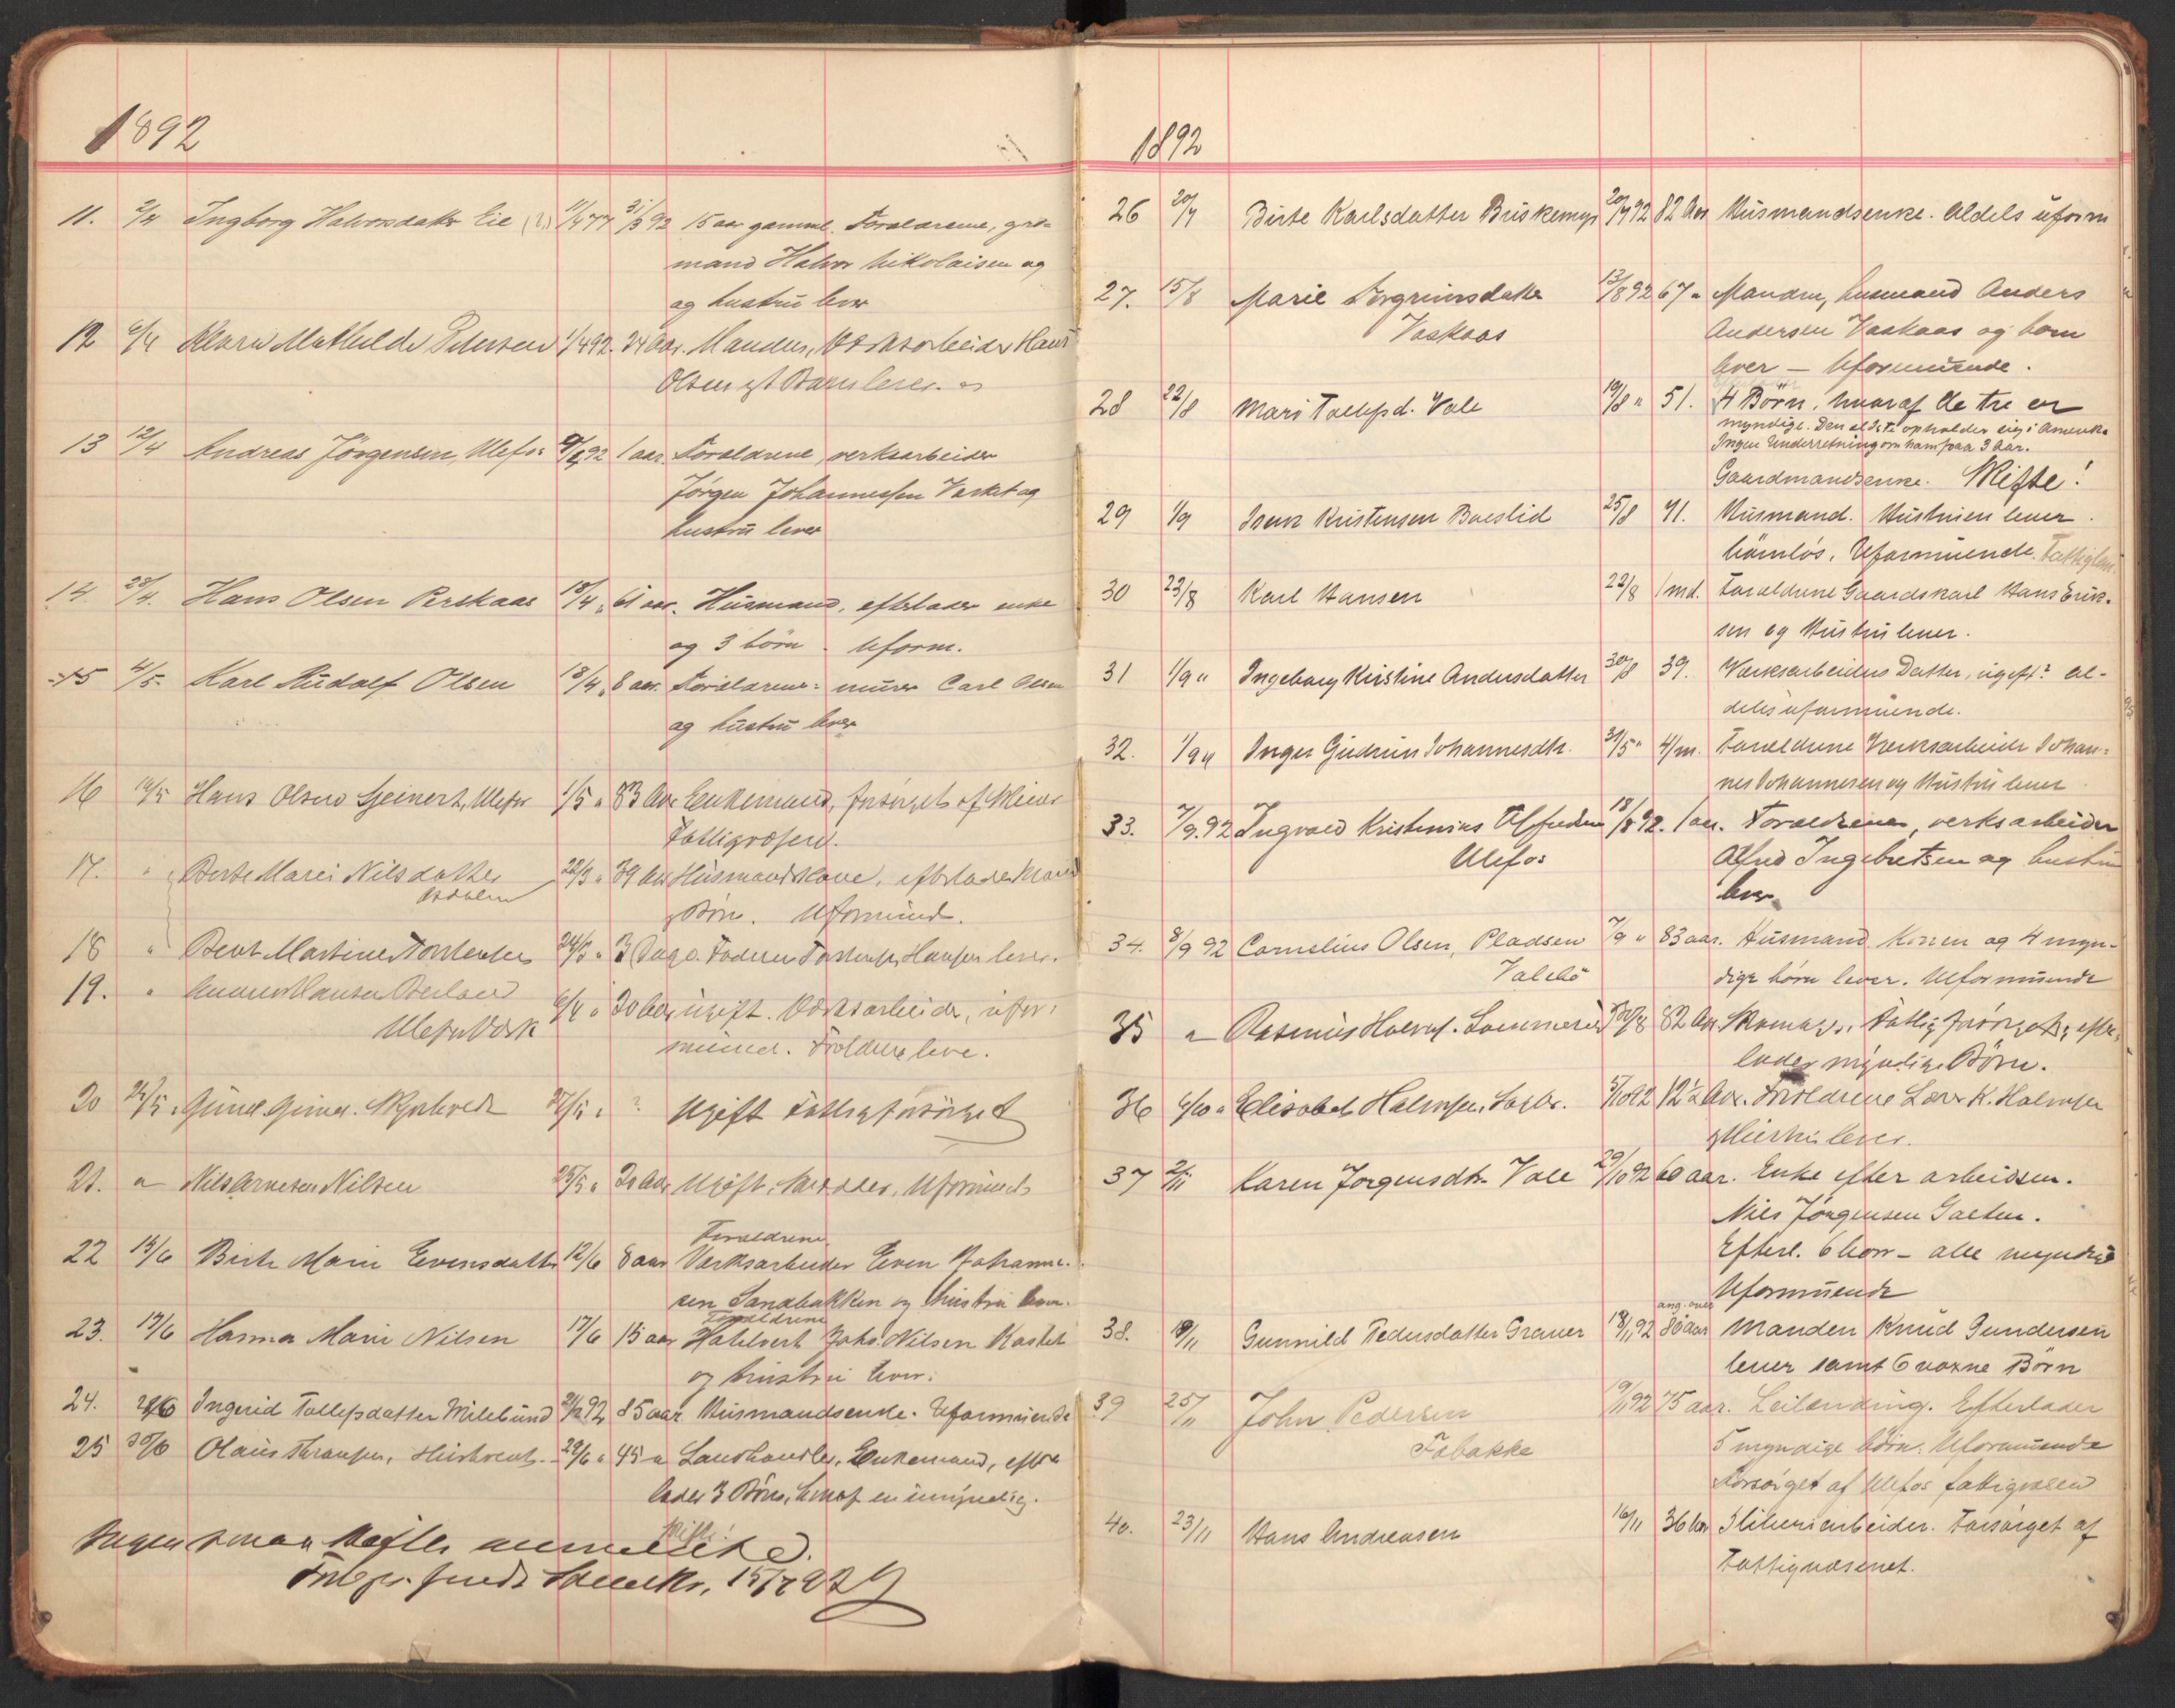 1892
11. 2/4 Ingborg Halvorsdatter Eie 11/4 77 31/3 92 15 aar gammel. Forældrene, gru-
mand Halvor Nikolaisen og
og hustru lever
12 6/4 Mathilde Petersen 1/4 92. 24 Aar. Manden, Værksarbeider Hans
Olsen og et Barn lever.
13 12/4 Andreas Jörgensen, Ulefos 9/4 92 1 aar. Forældrene, verksarbeider
Jörgen Johannessen Vasket og
hustru lever
14 23/4. Hans Olsen Perskaas 18/4 " 61 aar. Husmand, efterlader enke
og 3 börn. Uform.
15 4/5. Karl Rudolf Olsen 13/4 " 8 aar. Forældrene: murer Carl Olsen
og hustru lever
16 14/5 Hans Olsen Geinert, Ulefos 1/5 " 83 Aar Enkemand, forsörget af Skiens
Fattigvæsen.
17. " Berte Marie Nilsdatter 22/3 " 39 Aar Husmandskone, efterlader Mand
og Börn. Uformuende.
18 " Bent Martines Torstensen 24/3 " 3 Dage. Faderen Torsten Hansen lever.
19. " Gunder Hansen
Ulefos Værk 6/4 " 20 Aar ugift. Værksarbeider, ufor-
muende. Forældrene leve.
20 24/5. Gunil Gund. 22/5 " ? Ugift Fattigforsörget
21. " Nils Arnesen Nilsen 25/5 " 20 Aar Ugift. Uformuende
22 13/6 Birte Marie Evensdatter 12/6 8 aar Forældrene
Verksarbeider Even Johanne-
sen Sandbakken og hustru lever.
23. 17/6 Hanna Marie Nilsen 17/6 15 aar Forældrene
Johs. Nilsen Kastet
og hustru lever.
24. 28/6 Ingerid Tollefsdatter 92 85 aar Husmandsenke. Uformuende
25 30/6 Olaus 29/6 " 45 " Landhandler, Enkemand, efter-
lader 3 Börn, hvoraf en umyndig.
Skifte!
Ingen Skifte anmeldte.
15/7 92
1892
26 20/7 Birte Karlsdatter Briskemyr 20/7 92 82 Aar Husmandsenke. Aldels uform
27. 15/8 Marie Torgrimsdatter 13/8 92 67 " Manden, husmand Anders
Vaskaas Andersen Vaskaas og barn
lever – Uformuende.
28 22/8 Mari Tollefsd. Vale 19/8 " 51. 4 Börn, hvoraf de tre er
myndige. Den eldste opholder sig i Amerika
Ingen Underretning om ham paa 3 Aar.
Gaardmandsenke. Skifte!
29 1/9 Isak Kristensen Baeslid 25/8 71. Husmand. Hustruen lever.
barnlös. Uformuende. Fattiglem
30 23/8 Karl Hansen 22/8 1 md. Forældrene Gaardskarl Hans Erik-
sen og Hustru lever.
31 1/9 " Ingeborg Kristine Andersdatter 30/8 39. Værksarbeiders Datter, ugift? al-
deles uformuende.
32. 1/9 " Inger Gudrun Johannesdtr. 31/5 " 4/m. Forældrene Verksarbeider Johan-
nes Johannesen og Hustru lever
33. 7/9. 92 Ingvald Kristinius Alfredsen 18/8 92. 1 aar. Forældrene, verksarbeider
Ulefos Alfred Ingebretsen og hustru
lever
34. 8/9 92 Cornelius Olsen, Pladsen 7/9 " 83 aar. Husmand Konen og 4 myn-
Valebö dige börn lever. Uformuende
35 " Rasmus Halvors. 82 Aar Skomager. Fattigforsörget, efter-
lader myndige Börn.
36 6/10 " Elisabet Halvorsen, 5/10 92 12½ Aar. Forældrene Lars K. Halvorsen
og Hustru lever.
37 2/11 Karen Jörgensdtr. Vale 29/10 92 60 aar. Enke efter arbeidsm.
Nils Jörgensen Gaeten.
Efterl. 6 barn – alle myndige
Uformuende
38. 19/11 Gunnild Pedersdatter Graver 18/11 92 ang. over
80 Aar Manden Knud Gundersen
lever samt 6 voxne Börn
39 25/11 John Pedersen 9/11 92 75 aar. Leilending. Efterlader
Fobakke 5 myndige börn. Uformuende
Forsörget af Ulefos fattigvæsen
40. 23/11 Hans Andreasen 16/11 36 Aar Sliberiarbeider. Forsörget af
Fattigvæsenet.